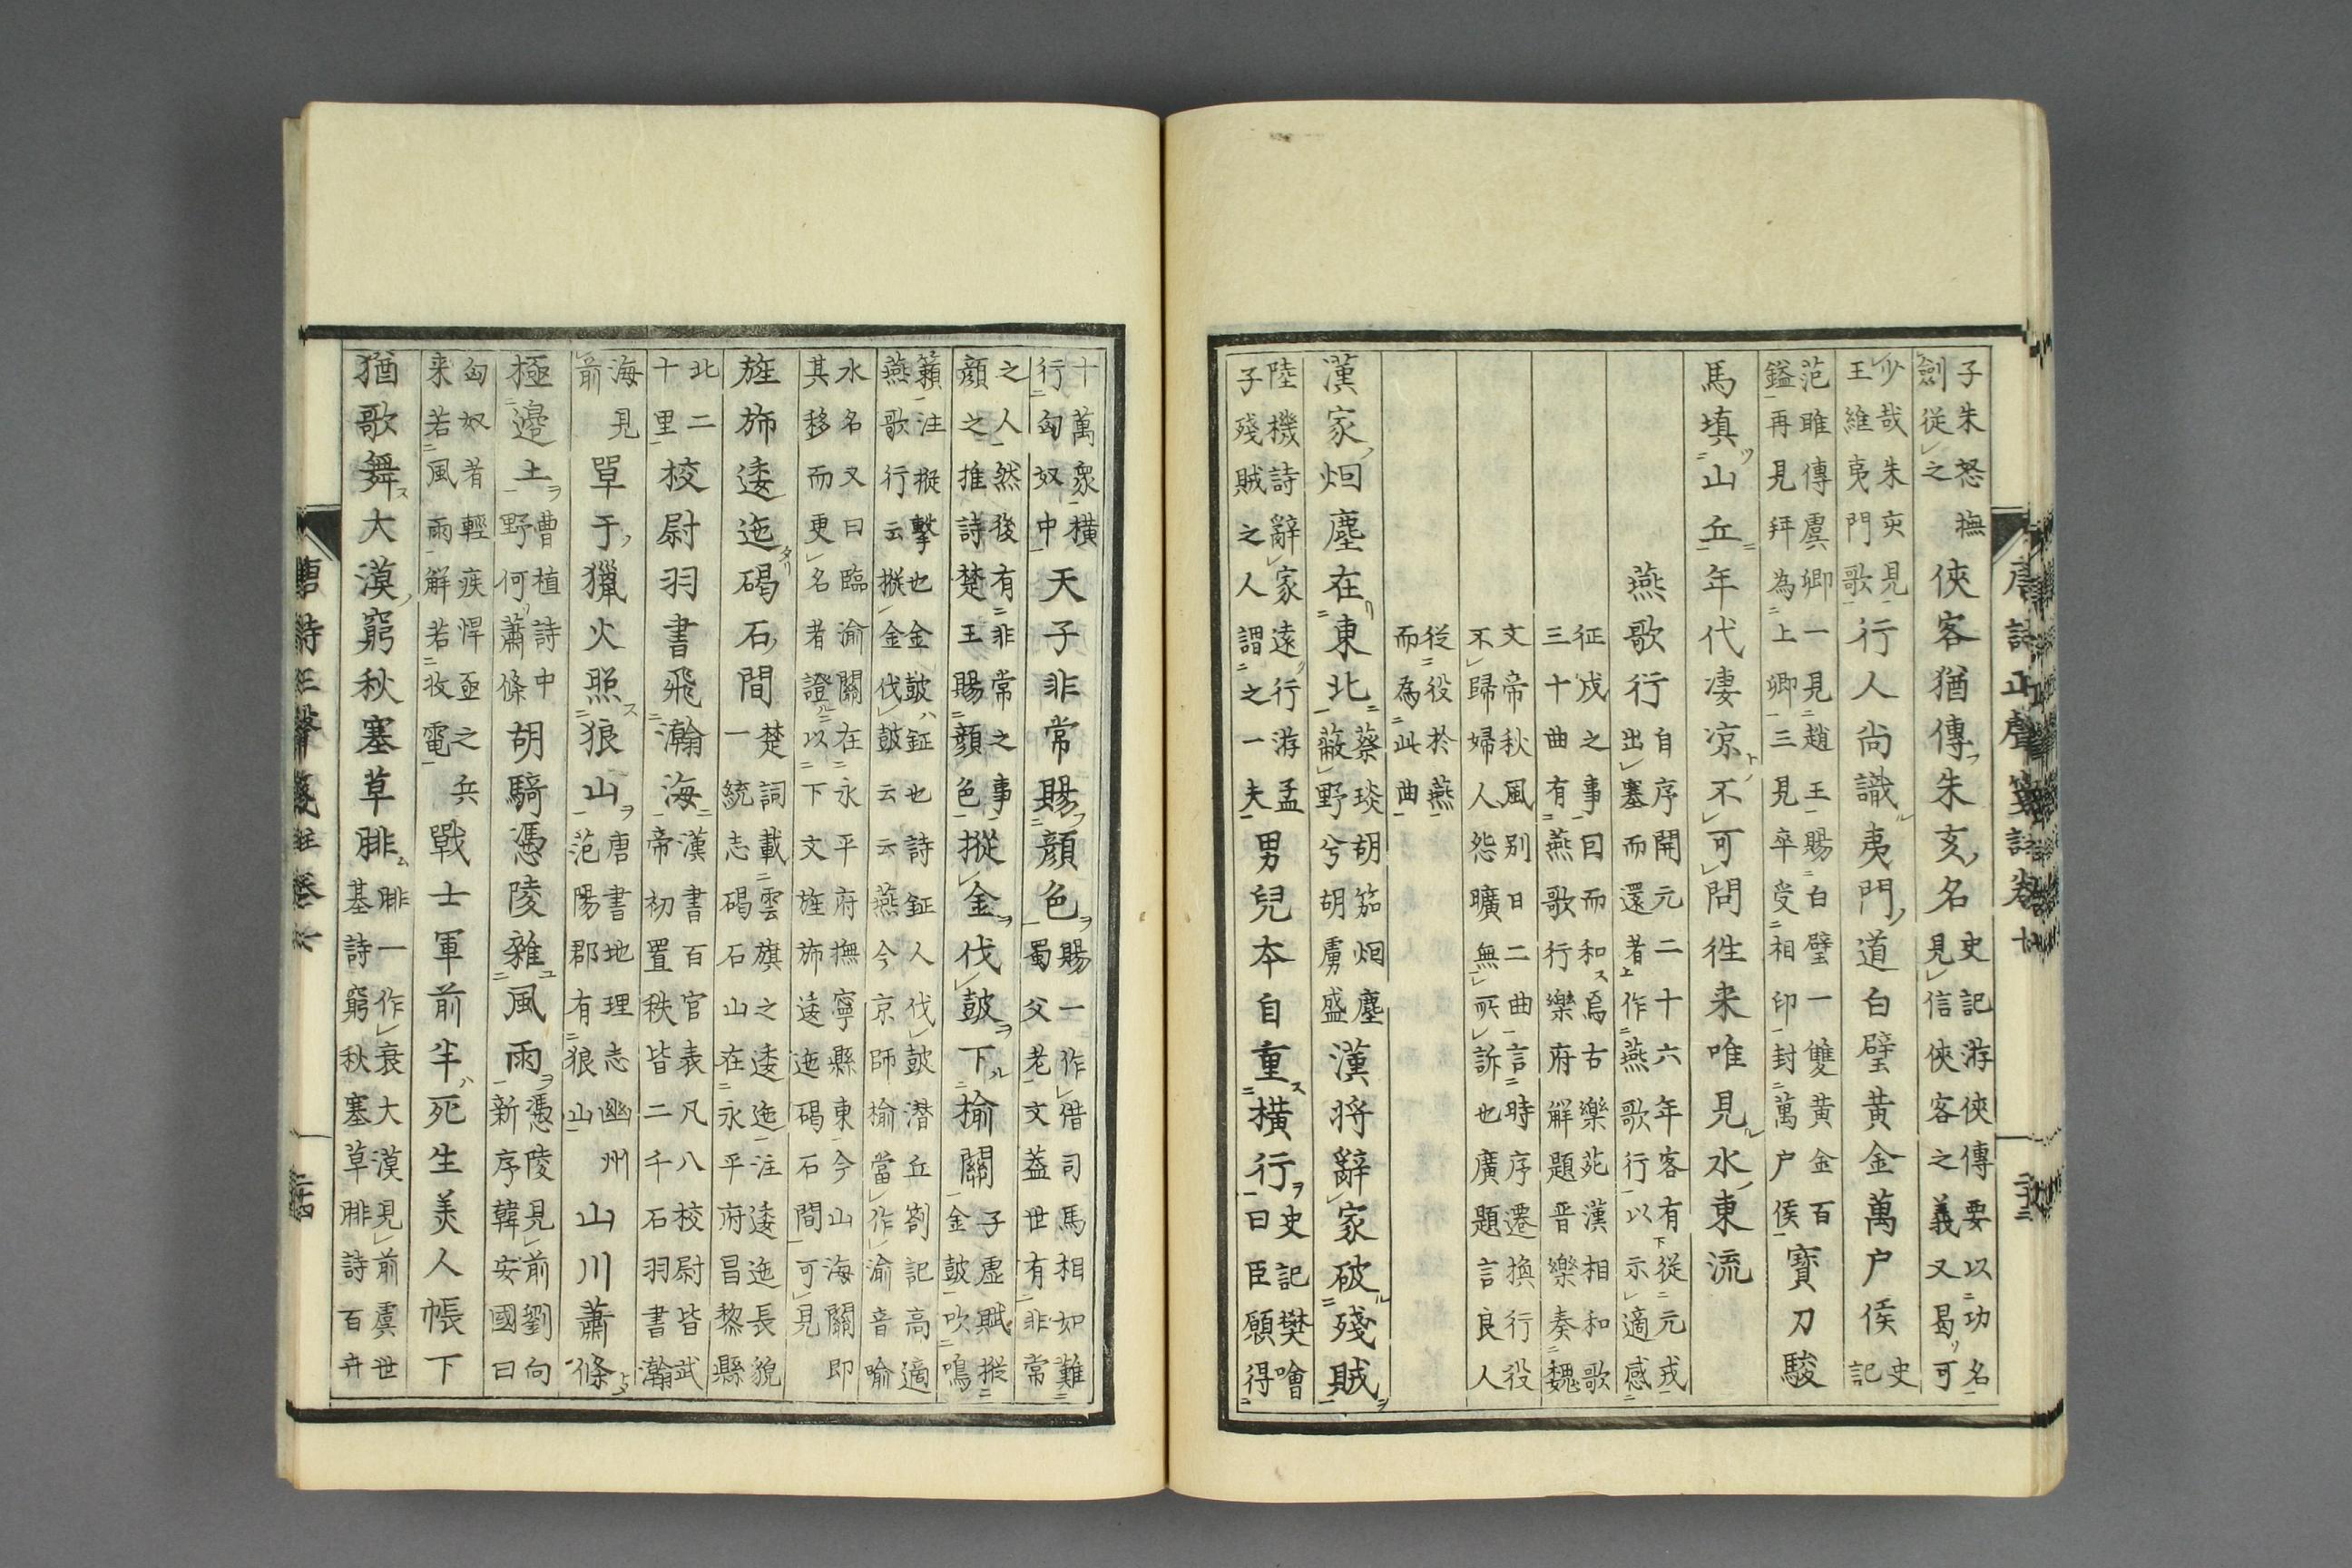 子朱怒撫
劍從之
俠客猶傳朱亥名
史記游俠傳要以功名
見信俠客之義又曷可
少哉朱亥見
王維夷門歌
行人尚識夷門道白璧黃金萬户侯
史
記
范雎傳虞卿一見趙王賜白璧一雙黃金百
鎰再見拜為上卿三見卒受相印封萬户侯
寶刀駿
馬填山丘年代凄凉不可問徃来唯見水東流
燕歌行
自序開元二十六年客有從元戎
出塞而還者作燕歌行以示適感
征戍之事因而和焉古樂苑漢相和歌
三十曲有燕歌行樂府解題晋樂奏魏
文帝秋風別日二曲言時序遷換行役
不歸婦人怨曠無所訴也廣題言良人
從役於燕
而為此曲
漢家烟塵在東北
蔡琰胡笳烟塵
蔽野兮胡虜盛
漢将辭家破殘賊
陸機詩辭家遠行游孟
子殘賊之人謂之一夫
男兒本自重横行
史記樊噲
曰臣願得
十萬衆横
行匈奴中
天子非常賜顔色
賜一作借司馬相如難
蜀父老文蓋世有非常
之人然後有非常之事
顔之推詩楚王賜顔色
摐金伐鼓下榆關
子虛賦摐
金鼓吹鳴
籟注摐擊也金鼓鉦也詩鉦人伐鼓潜丘劄記高適
燕歌行云摐金伐鼓云云燕今京師榆當作渝音喻
水名又曰臨渝關在永平府撫寧縣東今山海關即
其移而更名者證以下文旌斾逶迤碣石間可見
旌斾逶迤碣石間
楚詞載雲旗之逶迤注逶迤長貌
一統志碣石山在永平府昌黎縣
北二
十里
校尉羽書飛瀚海
漢書百官表凡八校尉皆武
帝初置秩皆二千石羽書瀚
海見
前
單于獵火照狼山
唐書地理志幽州
范陽郡有狼山
山川蕭條
極邊土
曹植詩中
野何蕭條
胡騎憑陵雜風雨
憑陵見前劉向
新序韓安國曰
匈奴者輕疾悍亟之兵
来若風雨解若收電
戰士軍前半死生美人帳下
猶歌舞大漠窮秋塞草腓
腓一作衰大漠見前虞世
基詩窮秋塞草腓詩百卉
唐詩正聲箋註卷